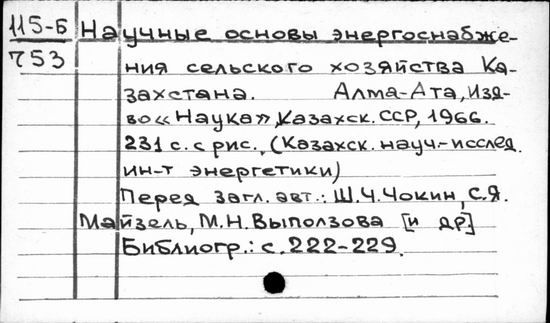 115-Б Научные основы энергоснабже-
753 ния сельского хозяйства Ка-
захстана. Алма-Ата, Изд-
во «Наука», Казахск. ССР, 1966.
231 с. с рис. (Казахск. науч-исслед.
ин-т энергетики)
Перед загл. авт.: Ш.Ч. Чокин, С.Я.
Майзель, М.Н. Выползова [и др.]
Библиогр.: с. 222-229.